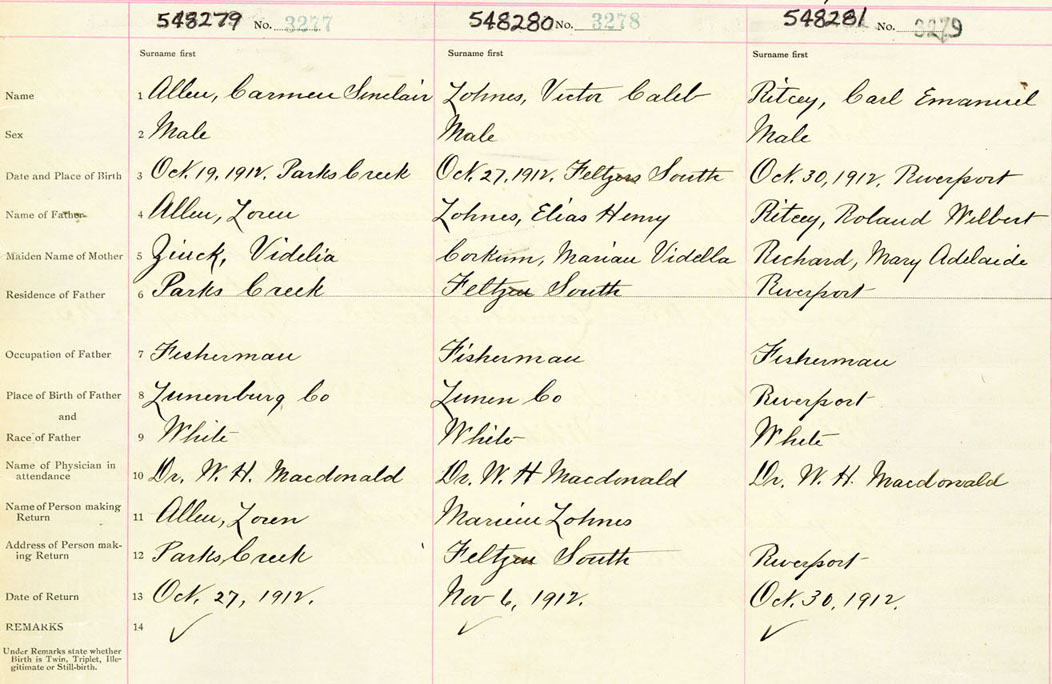 548279 No. 3277 548280 No. 3278 548281 No. 3279
Surname first Surname first Surname first
Name 1 Allen, Carmen Sinclair Zohnes, Victor Caleb Ritcey, Carl Emanuel
Sex 2 Male Male Male
Date and Place of Birth 3 Oct. 19, 1912. Parks Creek Oct. 27, 1912. Feltzen South Oct. 30, 1912. Riverport
Name of Father 4 Allen, Loren Zohnes, Elias Henry Ritcey, Roland Wilbert
Maiden Name of Mother 5 Zinck, Videlia Corkum, Marian Vidella Richard, Mary Adelaide
Residence of Father 6 Parks Creek Feltzen South Riverport
Occupation of Father 7 Fisherman Fisherman Fisherman
Place of Birth of Father 8 Lunenburg Co Lunen Co Riverport
and
Race of Father 9 White White White
Name of Physician in
attendance 10 Dr. W. H. Macdonald Dr. W. H Macdonald Dr. W. H. Macdonald
Name of Person making
Return 11 Allen, Loren Zohnes
Address of Person mak-
ing Return 12 Parks Creek Feltzen South Riverport
Date of Return 13 Oct. 27, 1912. Nov 6, 1912. Oct. 30, 1912.
REMARKS 14 ✓ ✓ ✓
Under Remarks state whether
Birth is Twin, Triplet, Ille-
gitimate or Still-birth.